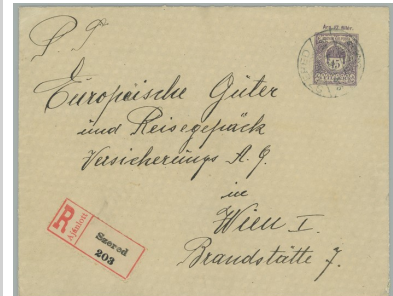 P 9
Europäische Güter
und Reisegepäck
Versicherungs A. G.
in
Wien I.
Brandstätte 7.
45
R
Ajánlott
Szered
203